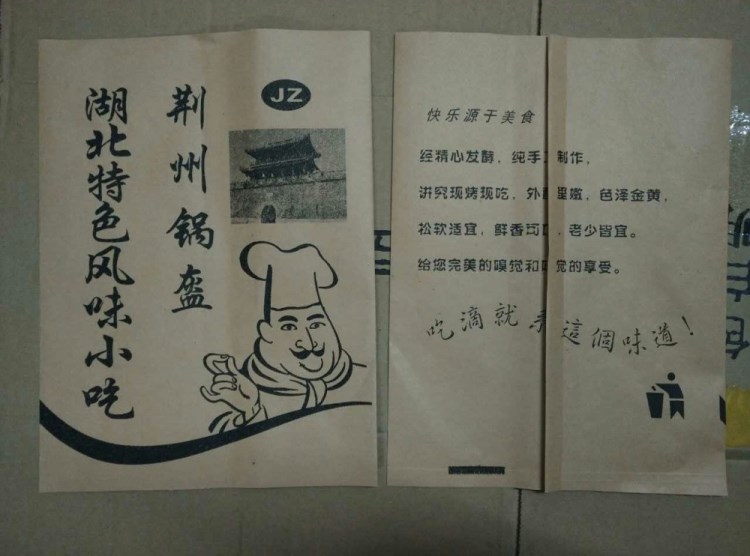 JZ
荆州锅盔
湖北特色风味小吃
快乐源于美食
经精心发酵,纯手 制作,
讲究现烤现吃,外 里嫩,色泽金黄,
松软适宜,鲜香 ,老少皆宜。
给您完美的嗅觉和 觉的享受。
吃滴就 這個味道!